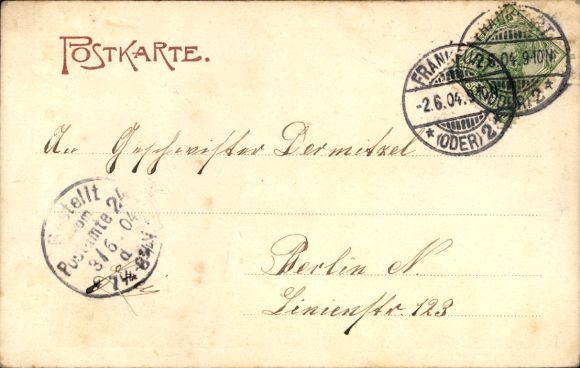 POSTKARTE.
FRANKFURT
-2.6.04.
*(ODER)2.*
FRANKFURT
6.04.9-10N.
*(ODER)2.*
An Geschwister Dermitzel
Bestellt
vom
Postamte 24
3/6. 04
7¼-8¾V.
Berlin N.
Linienstr. 123